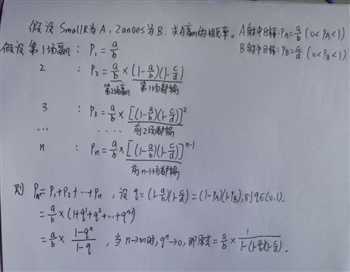 假设 SmallR为A, Zanoes为B. 求A赢的概率. A射中目标: P_A=a/b (0<P_A<1)
B射中目标: P_B=c/d (0<P_B<1)
假设 第1场赢: P₁ = a/b
2 : P₂ = a/b × (1-a/b)(1-c/d)
第2场赢 第1场都输
3 : P₃ = a/b × [(1-a/b)(1-c/d)]²
... ... 前2场都输
n : Pₙ = a/b × [(1-a/b)(1-c/d)]ⁿ⁻¹
前n-1场都输
则 P = P₁+P₂+...+Pₙ , 设 q = (1-a/b)(1-c/d) = (1-P_A)(1-P_B), 则 q∈(0,1).
= a/b × (1+q¹+q²+...+qⁿ⁻¹)
= a/b × (1-qⁿ)/(1-q) , 当 n→∞时, qⁿ→0, 即 = a/b × 1/(1-(1-a/b)(1-c/d)).